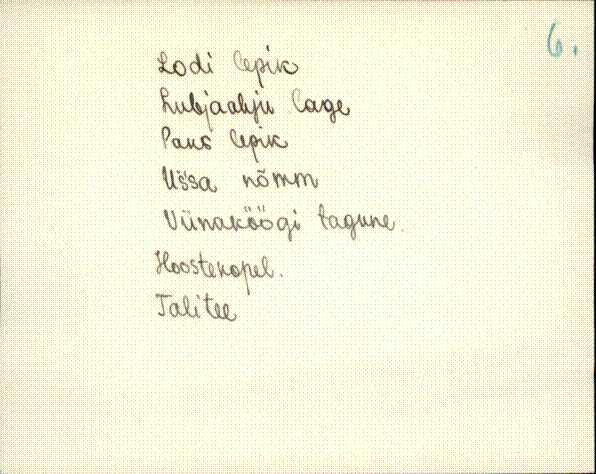 6.
Lodi lepik
Lubjaahju lage
Paus lepik
Ušsa nõmm
Viinaköögi tagune.
Hoostekopel.
Talitee